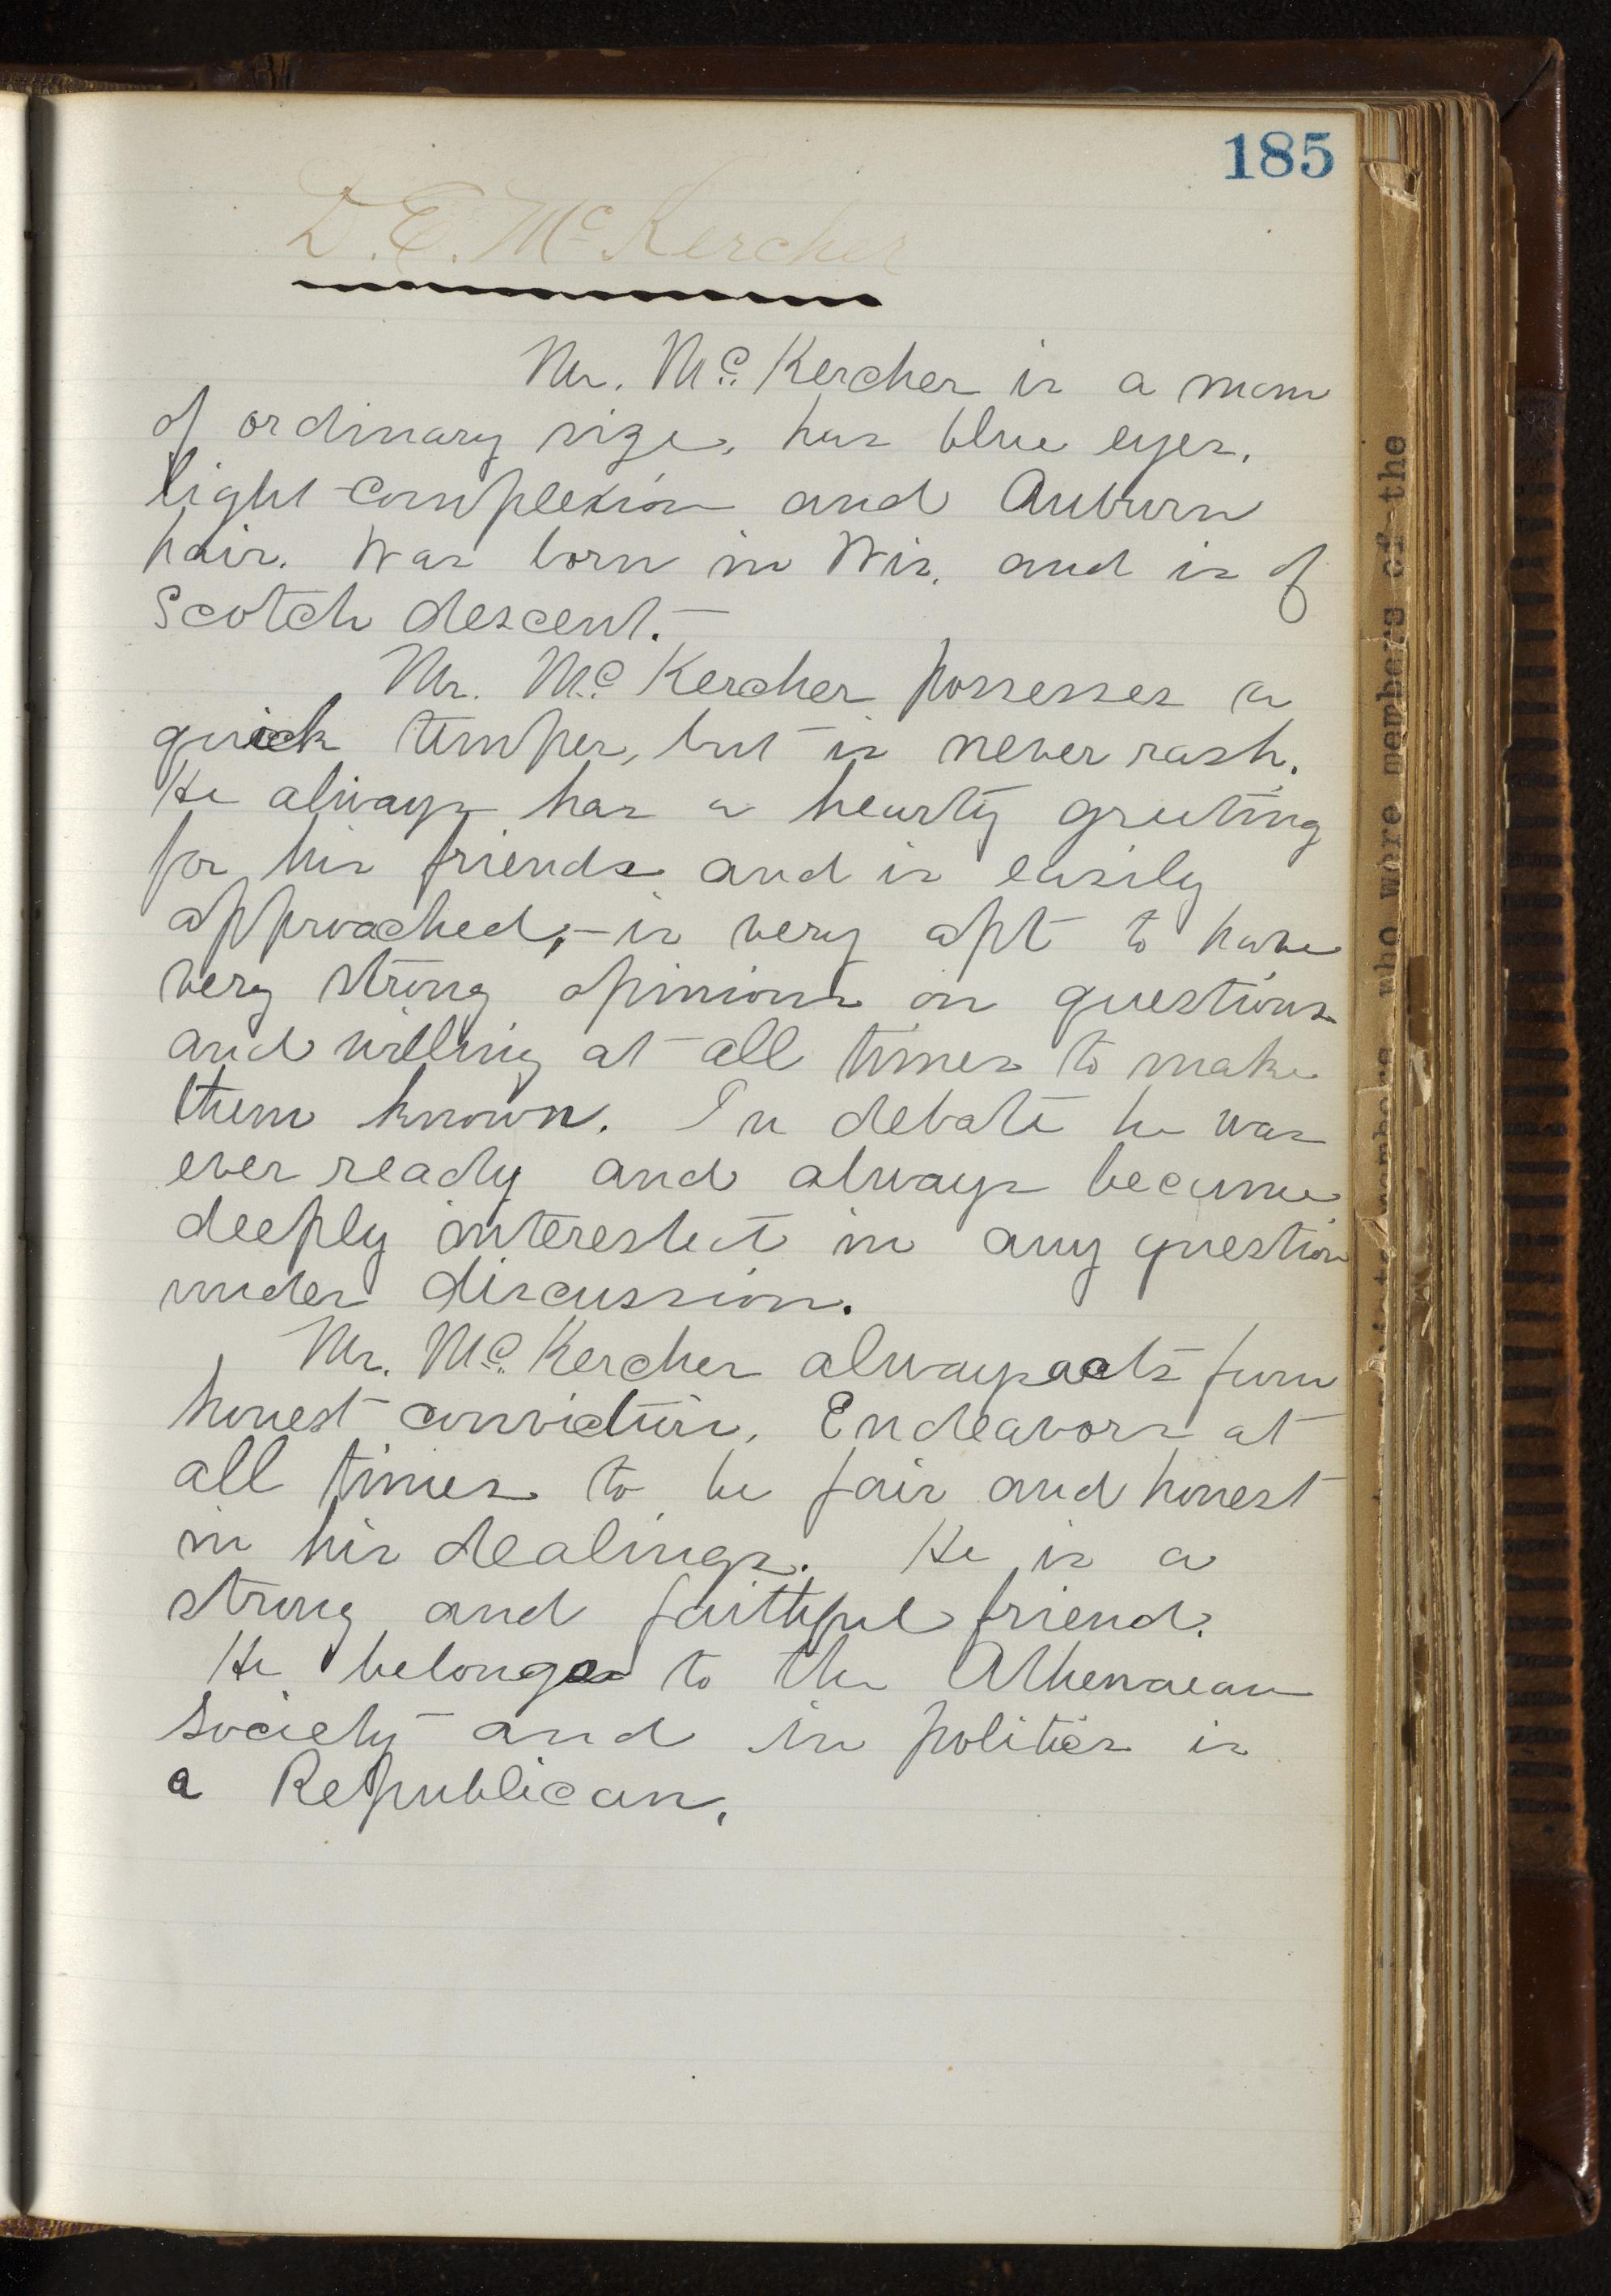 185
D. E. Mc Kercher
Mr. Mc. Kercher is a man
of ordinary size, has blue eyes,
light complexion and Auburn
hair. Was born in Wis. and is of
Scotch descent.
Mr. Mc. Kercher possesses a
quick temper, but is never rash.
He always has a hearty greeting
for his friends and is easily
approached;- is very apt to have
very strong opinions on questions
and willing at all times to make
them known. In debate he was
ever ready and always became
deeply interested in any question
under discussion.
Mr. Mc. Kercher always acts from
honest conviction. Endeavors at
all times to be fair and honest
in his dealings. He is a
strong and faithful friend.
He belongs to the Athenaean
society and in politics is
a Republican.
who were members of the